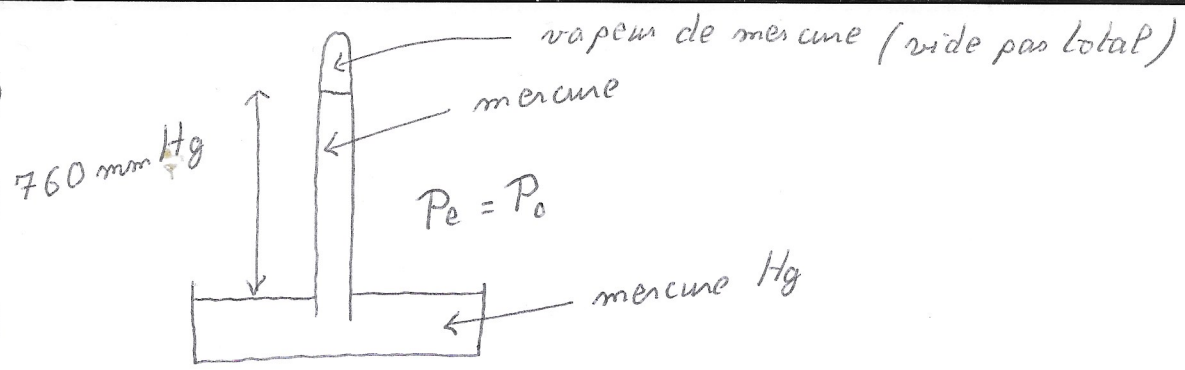 vapeur de mercure (vide pas total)
mercure
760 mm Hg
Pe = Po
mercure Hg